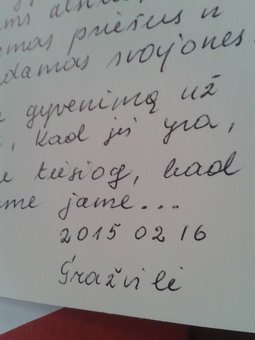 priešus ir
svajones
gyvenimą už
, kad jis yra,
tiesiog, kad
jame...
2015 02 16
Gražvilė